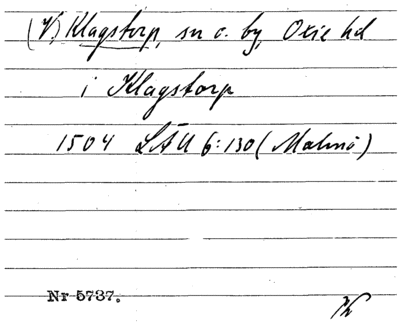 (V) Klagstorp, sn o. by, Oxie hd
i Klagstorp
1504 LÄU 6:130 (Malmö)
Nr 5737.